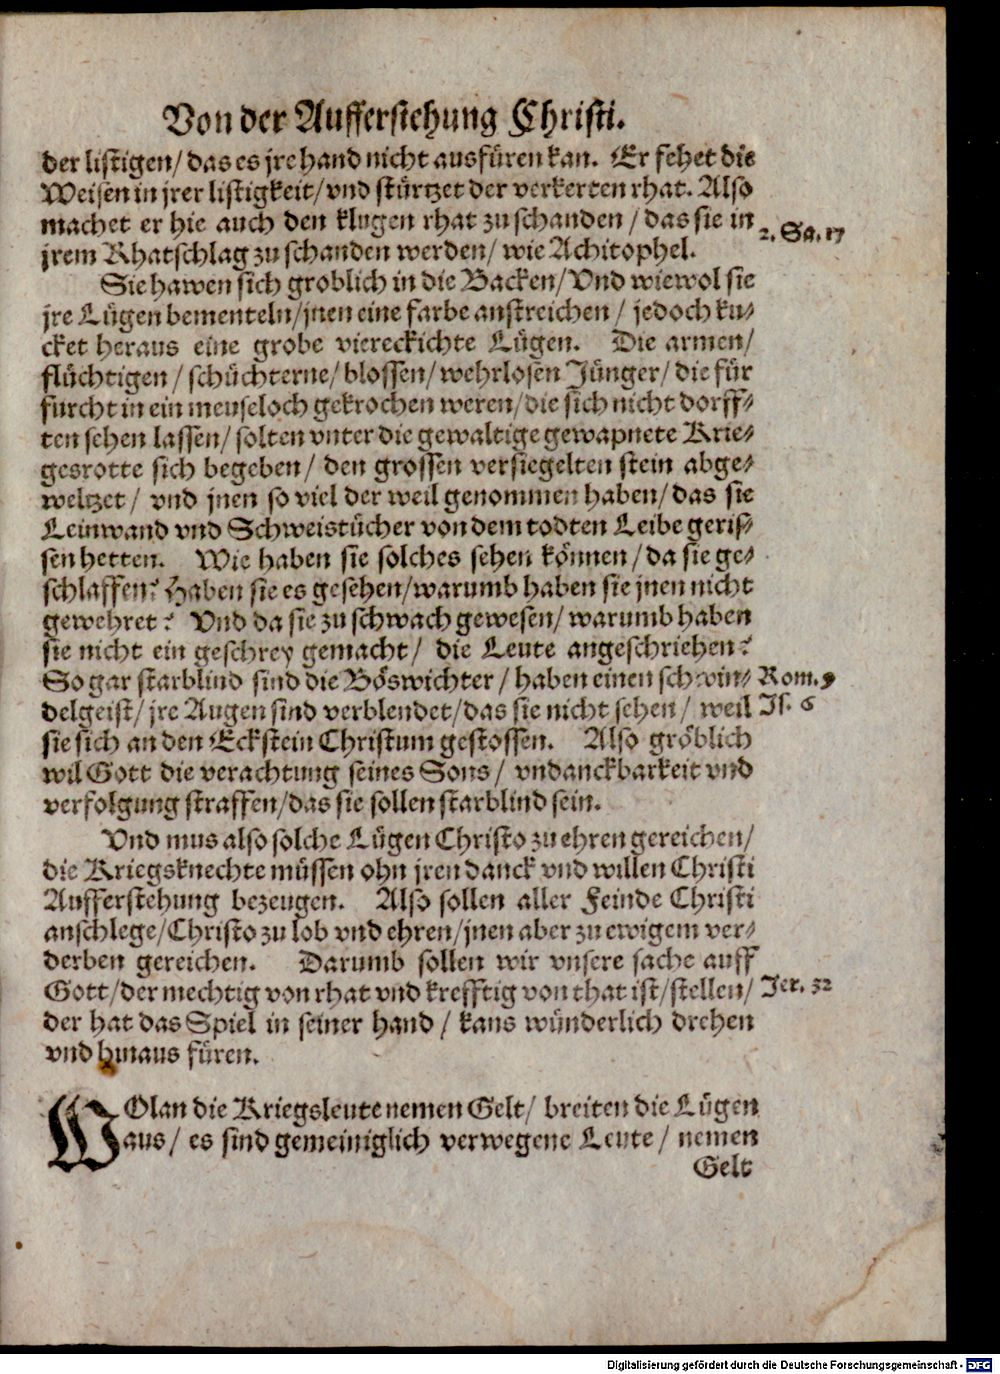 Von der Aufferstehung Christi.
der listigen/ das es jre hand nicht ausfüren kan. Er fehet die
Weisen in jrer listigkeit/ vnd stürtzet der verkerten rhat. Also
machet er hie auch den klugen rhat zu schanden / das sie in
jrem Rhatschlag zu schanden werden/ wie Achitophel.
2. Sa. 17
Sie hawen sich groblich in die Backen/ Vnd wiewol sie
jre Lügen bementeln/ jnen eine farbe anstreichen / jedoch ku-
cket heraus eine grobe viereckichte Lügen. Die armen/
flüchtigen / schüchterne/ blossen/ wehrlosen Jünger/ die für
furcht in ein meuseloch gekrochen weren/ die sich nicht dorff-
ten sehen lassen/ solten vnter die gewaltige gewapnete Krie-
gesrotte sich begeben/ den grossen versiegelten stein abge-
weltzet / vnd jnen so viel der weil genommen haben/ das sie
Leinwand vnd Schweistücher von dem todten Leibe geris-
sen hetten. Wie haben sie solches sehen können / da sie ge-
schlaffen? Haben sie es gesehen/ warumb haben sie jnen nicht
gewehret? Vnd da sie zu schwach gewesen/ warumb haben
sie nicht ein geschrey gemacht/ die Leute angeschriehen?
So gar starblind sind die Böswichter / haben einen schwin-
Rom. 9
delgeist/ jre Augen sind verblendet/ das sie nicht sehen/ weil
Js. 6
sie sich an den Eckstein Christum gestossen. Also gröblich
wil Gott die verachtung seines Sons/ vndanckbarkeit vnd
verfolgung straffen/ das sie sollen starblind sein.
Vnd mus also solche Lügen Christo zu ehren gereichen/
die Kriegsknechte müssen ohn jren danck vnd willen Christi
Aufferstehung bezeugen. Also sollen aller Feinde Christi
anschlege/ Christo zu lob vnd ehren/ jnen aber zu ewigem ver-
derben gereichen. Darumb sollen wir vnsere sache auff
Gott/ der mechtig von rhat vnd krefftig von that ist/ stellen/
Jer. 32
der hat das Spiel in seiner hand / kans wünderlich drehen
vnd hinaus füren.
WOlan die Kriegsleute nemen Gelt/ breiten die Lügen
aus/ es sind gemeiniglich verwegene Leute / nemen
Gelt
Digitalisierung gefördert durch die Deutsche Forschungsgemeinschaft - DFG